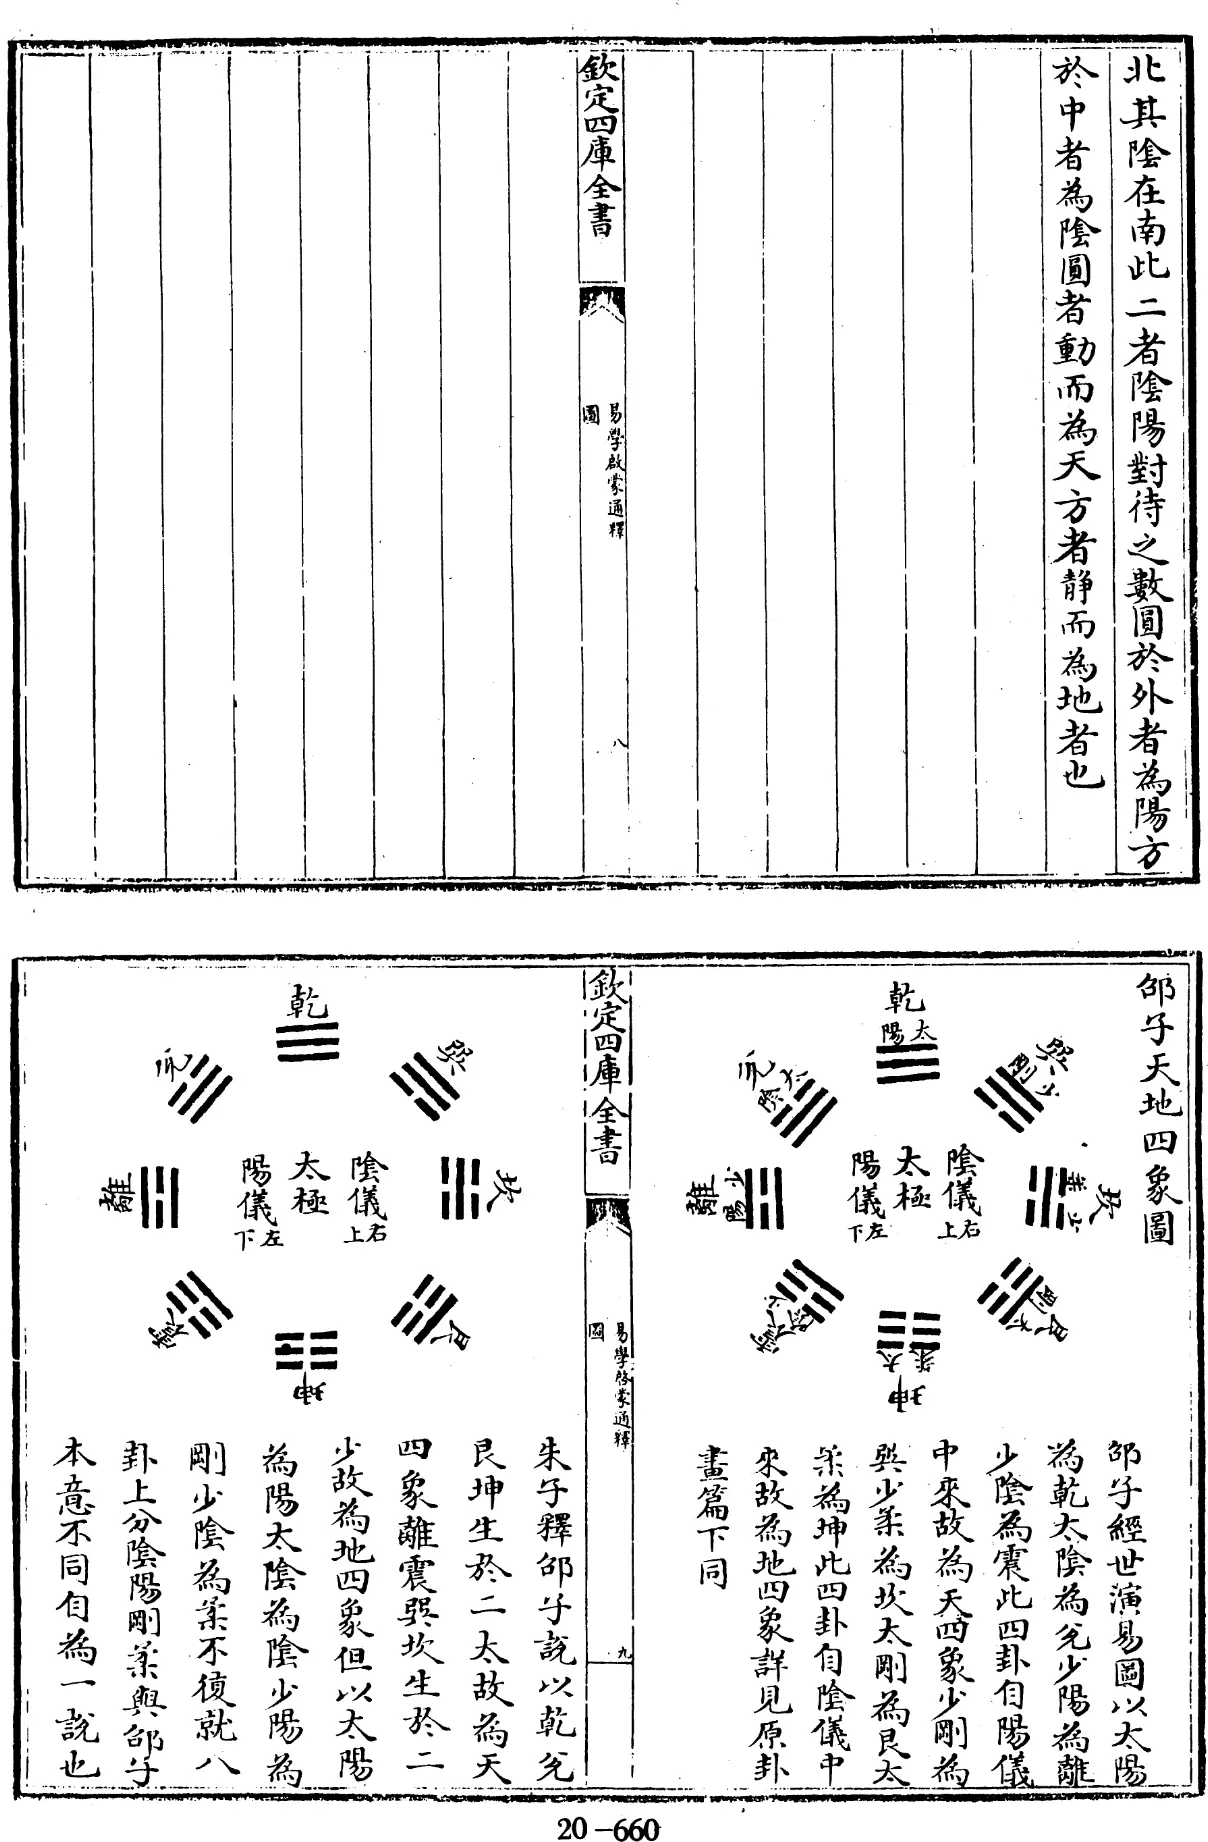 北其陰在南此二者陰陽對待之數圓於外者為陽方
於中者為陰圓者動而為天方者静而為地者也
欽定四庫全書
易學啟蒙通釋
圖
八
邵子天地四象圖
乾
太陽
巽
少剛
兌
太陰
坎
少柔
離
少陽
艮
太剛
震
少陰
坤
太柔
陰儀右上
太極
陽儀左下
邵子經世演易圖以太陽
為乾太陰為兌少陽為離
少陰為震此四卦自陽儀
中來故為天四象少剛為
巽少柔為坎太剛為艮太
柔為坤此四卦自陰儀中
來故為地四象詳見原卦
畫篇下同
欽定四庫全書
易學啓蒙通釋
圖
九
乾
巽
兌
坎
離
艮
震
坤
陰儀右上
太極
陽儀左下
朱子釋邵子說以乾兌
艮坤生於二太故為天
四象離震巽坎生於二
少故為地四象但以太陽
為陽太陰為陰少陽為
剛少陰為柔不復就八
卦上分陰陽剛柔與邵子
本意不同自為一說也
20-660